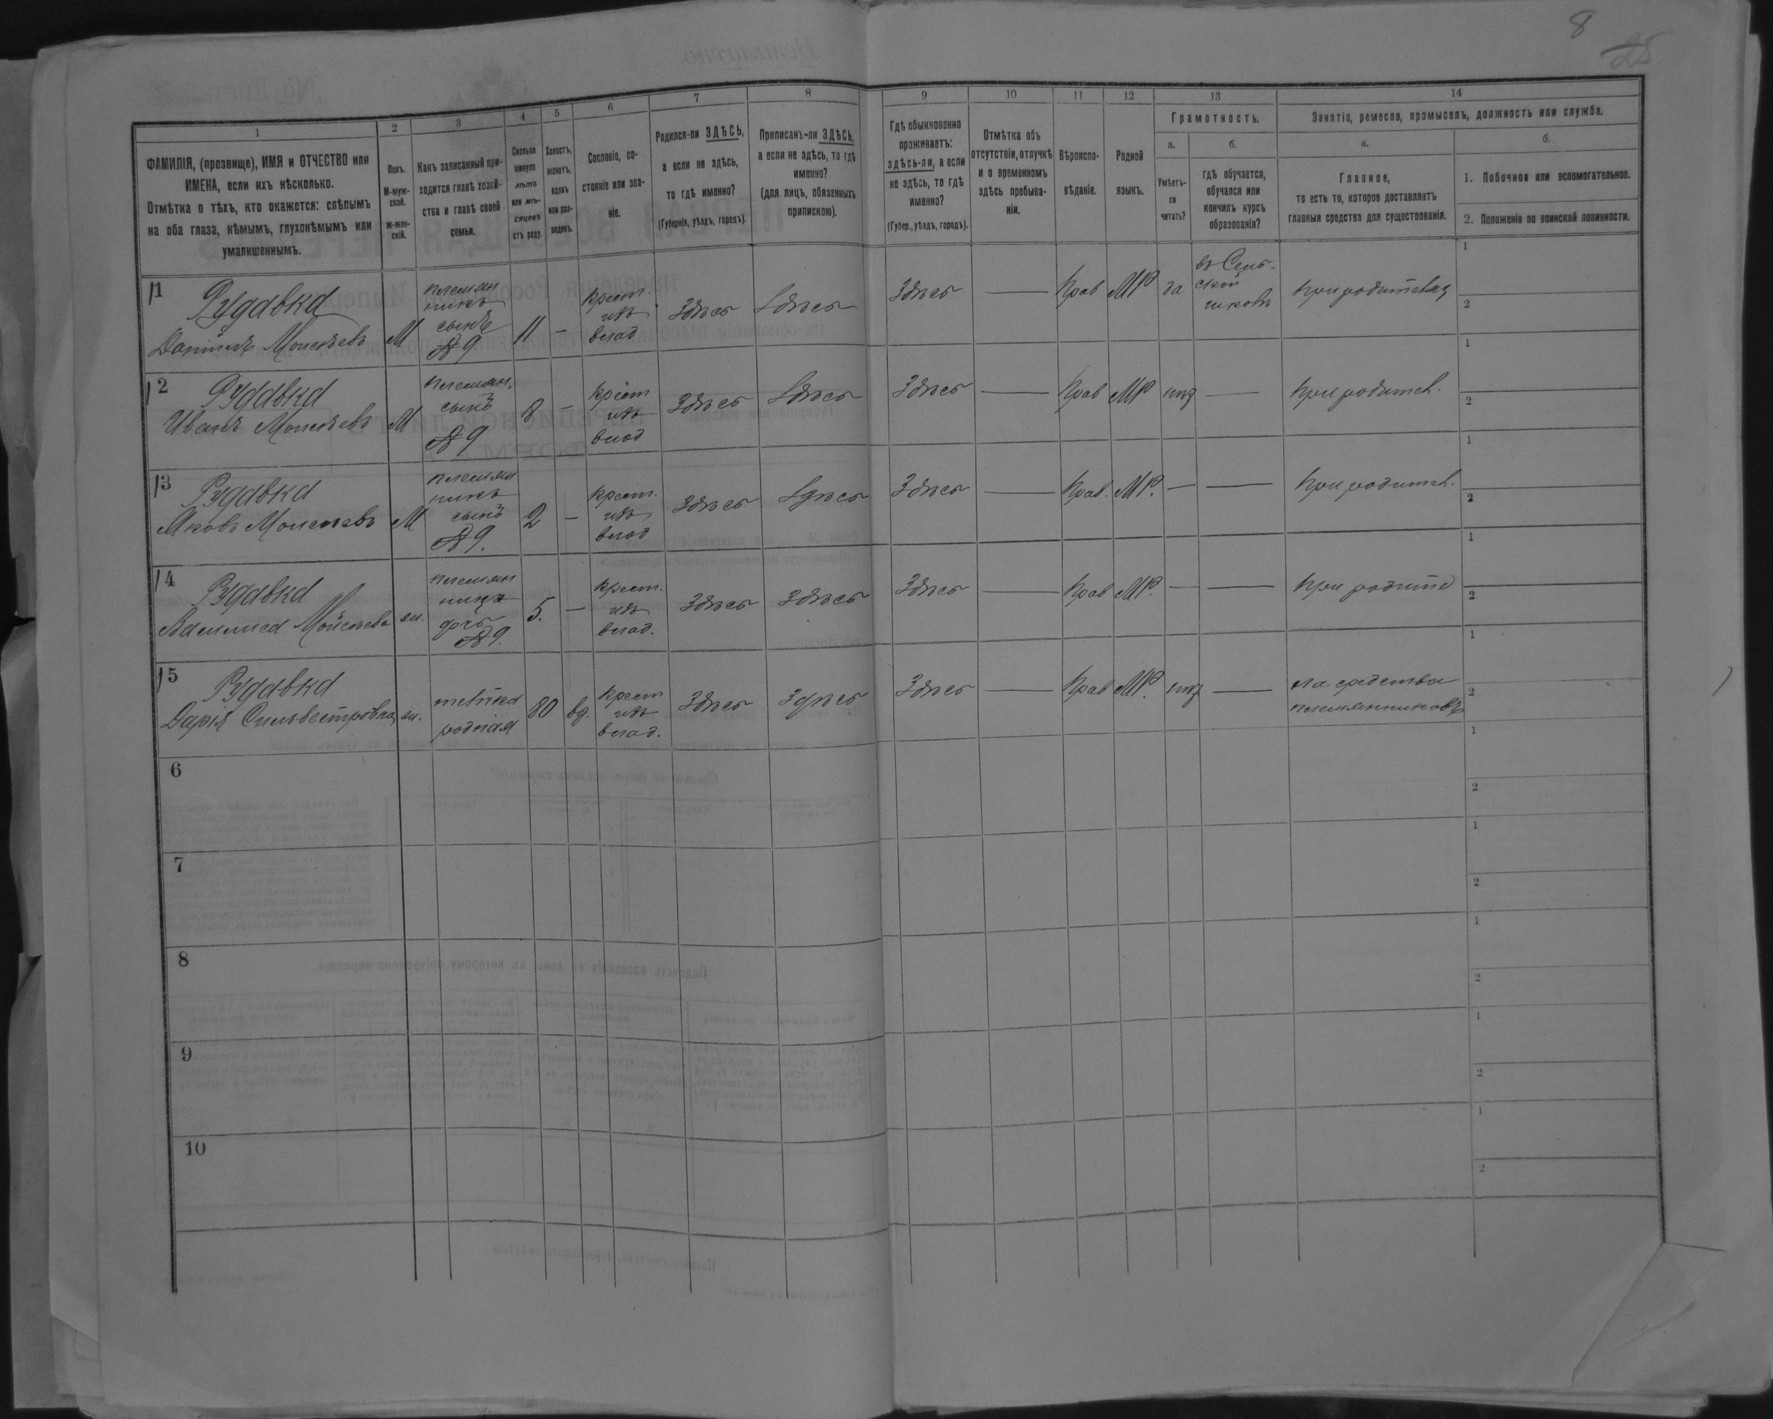 8
25
1
2
3
4
5
6
7
8
9
10
11
12
13
14
ФАМИЛІЯ, (прозвище), ИМЯ и ОТЧЕСТВО или
ИМЕНА, если ихъ нѣсколько.
Отмѣтка о тѣхъ, кто окажется: слѣпымъ
на оба глаза, нѣмымъ, глухонѣмымъ или
умалишеннымъ.
Полъ.
М-муж-
ской.
Ж-жен-
скій.
Какъ записанный при-
ходится главѣ хозяй-
ства и главѣ своей
семьи.
Сколько
минуло
лѣтъ
или мѣ-
сяцевъ
отъ роду.
Холостъ,
женатъ,
вдовъ
или раз-
веденъ.
Сословіе, со-
стояніе или зва-
ніе.
Родился-ли ЗДѢСЬ,
а если не здѣсь,
то гдѣ именно?
(Губернія, уѣздъ, городъ).
Приписанъ-ли ЗДѢСЬ,
а если не здѣсь, то гдѣ
именно?
(для лицъ, обязанныхъ
припискою).
Гдѣ обыкновенно
проживаетъ:
здѣсь-ли, а если
не здѣсь, то гдѣ
именно?
(Губер., уѣздъ, городъ).
Отмѣтка объ
отсутствіи, отлучкѣ
и о временномъ
здѣсь пребыва-
ніи.
Вѣроиспо-
вѣданіе.
Родной
языкъ.
Грамотность.
а.
Умѣетъ-
ли
читать?
б.
гдѣ обучается,
обучался или
кончилъ курсъ
образованія?
Занятіе, ремесло, промыселъ, должность или служба.
а.
Главное,
то есть то, которое доставляетъ
главныя средства для существованія.
б.
1. Побочное или вспомогательное.
2. Положеніе по воинской повинности.
11
Рудавка
Даніилъ Моисеевъ
М
племян
никъ
сынъ
№ 9
11
–
крест.
изъ
влад
Здѣсь
Здѣсь
Здѣсь
—
Прав
МР
да
въ Сель-
ской
школѣ
При родителяхъ
1
2
12
Рудавка
Иванъ Моисеевъ
М
племян.
сынъ
№ 9
8
–
крест
изъ
влад
Здѣсь
Здѣсь
Здѣсь
—
Прав
МР
нѣт
—
При родител.
1
2
13
Рудавка
Яковъ Моисеевъ
М
племян
никъ
сынъ
№ 9.
2
–
крест.
изъ
влад
Здѣсь
Здѣсь
Здѣсь
—
Прав.
МР.
—
—
При родител.
1
2
14
Рудавка
Моисеева
ж.
племян
ника
дочь
№ 9.
5.
–
крест.
изъ
влад.
Здѣсь
Здѣсь
Здѣсь
—
Прав
МР.
—
—
При родите
1
2
15
Рудавка
Дарія Сильвестровна
ж.
тетка
родная
80
вд.
крест
изъ
влад.
Здѣсь
Здѣсь
Здѣсь
—
Прав
МР.
нѣт
—
на средства
племянниковъ
1
2
6
1
2
7
1
2
8
1
2
9
1
2
10
1
2